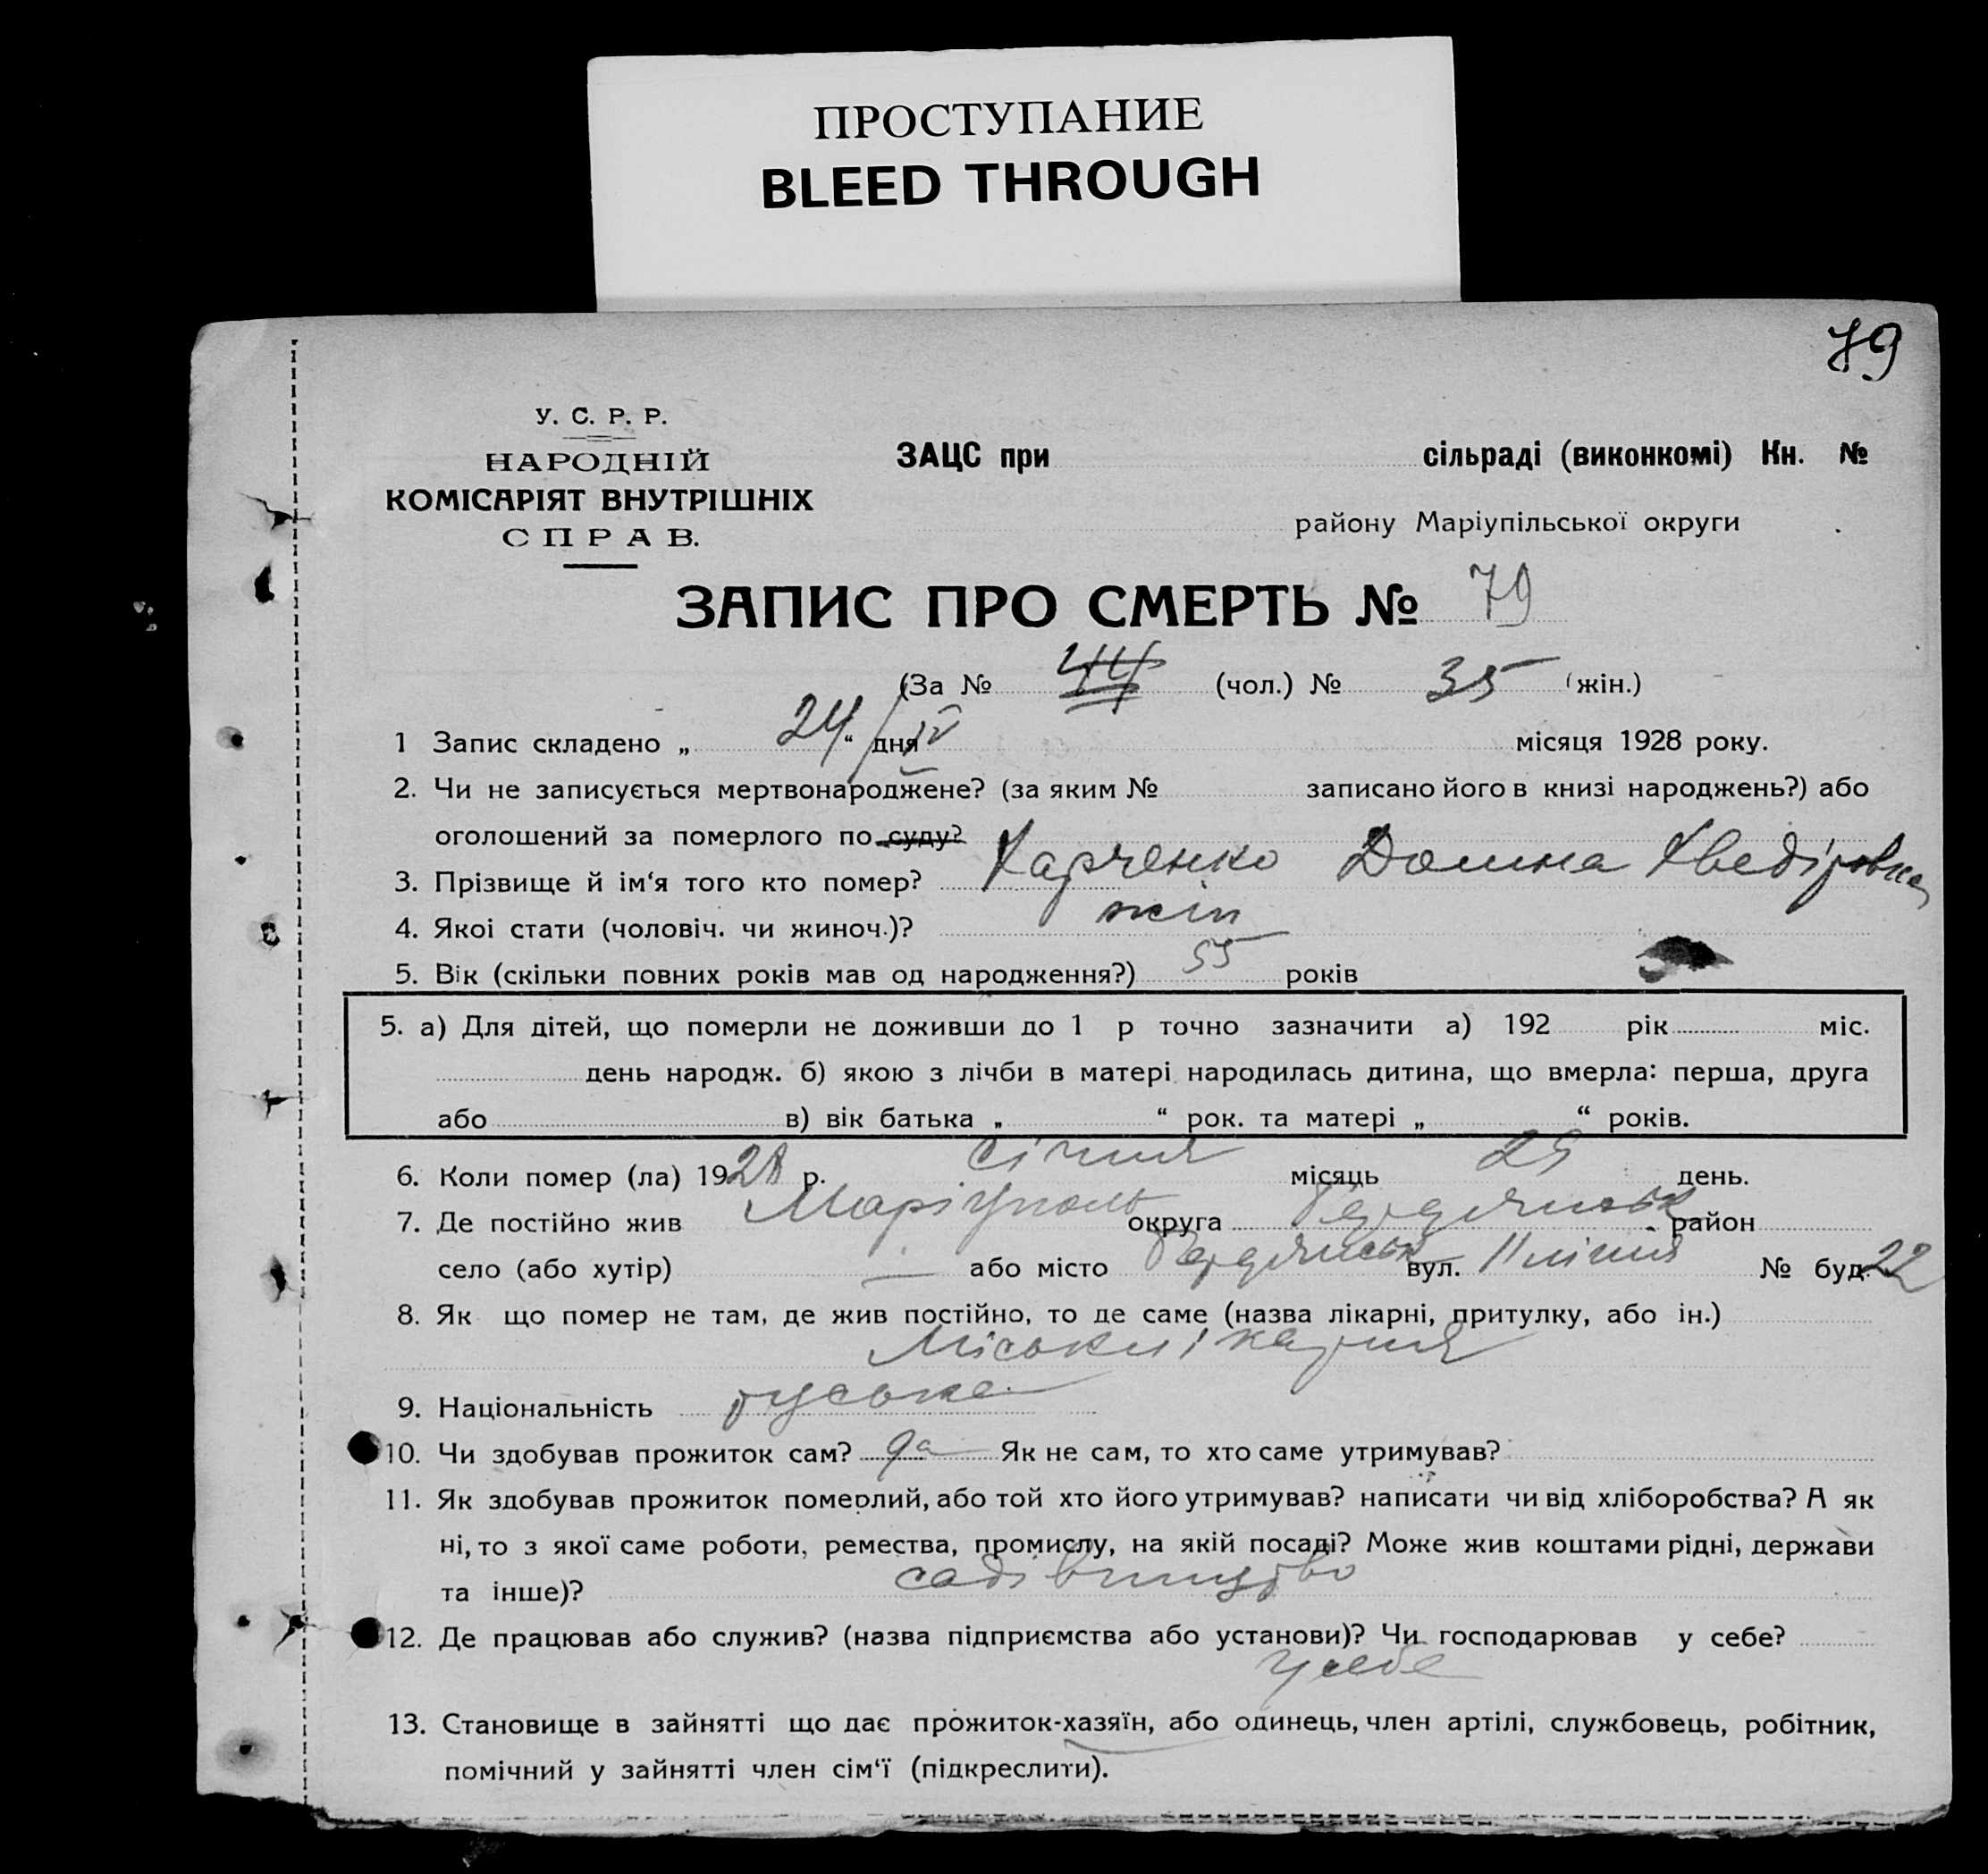 ПРОСТУПАНИЕ
BLEED THROUGH
79
У. С. Р. Р.
НАРОДНІЙ
КОМІСАРІЯТ ВНУТРІШНІХ
СПРАВ.
ЗАЦС при сільраді (виконкомі) Кн. №
району Маріупільської округи
ЗАПИС ПРО СМЕРТЬ № 79
(За № 44 (чол.) № 35 (жін.)
1 Запис складено „ 24/IV “ дня місяця 1928 року.
2. Чи не записується мертвонароджене? (за яким № записано його в книзі народжень?) або
оголошений за померлого по суду?
3. Прізвище й ім‘я того кто помер? Харченко Домна Хведіровна
4. Якоі стати (чоловіч. чи жиноч.)? жін
5. Вік (скільки повних років мав од народження?) 55 років
5. а) Для дітей, що померли не доживши до 1 р точно зазначити а) 192 рік міс.
день народж. б) якою з лічби в матері народилась дитина, що вмерла: перша, друга
або в) вік батька „ “ рок. та матері „ “ років.
6. Коли помер (ла) 1928 р. січня місяць 25 день.
7. Де постійно жив Маріуполь округа Бердянськ район
село (або хутір) — або місто Бердянськ вул. 11 лінія № буд. 22
8. Як що помер не там, де жив постійно, то де саме (назва лікарні, притулку, або ін.)
9. Національність руська
10. Чи здобував прожиток сам? да Як не сам, то хто саме утримував?
11. Як здобував прожиток померлий, або той хто його утримував? написати чи від хліборобства? А як
ні, то з якої саме роботи, ремества, промислу, на якій посаді? Може жив коштами рідні, держави
та інше)? садівництво
12. Де працював або служив? (назва підприємства або установи)? Чи господарював у себе?
у себе
13. Становище в зайнятті що дає прожиток-хазяїн, або одинець, член артілі, службовець, робітник,
помічний у зайнятті член сім‘ї (підкреслити).